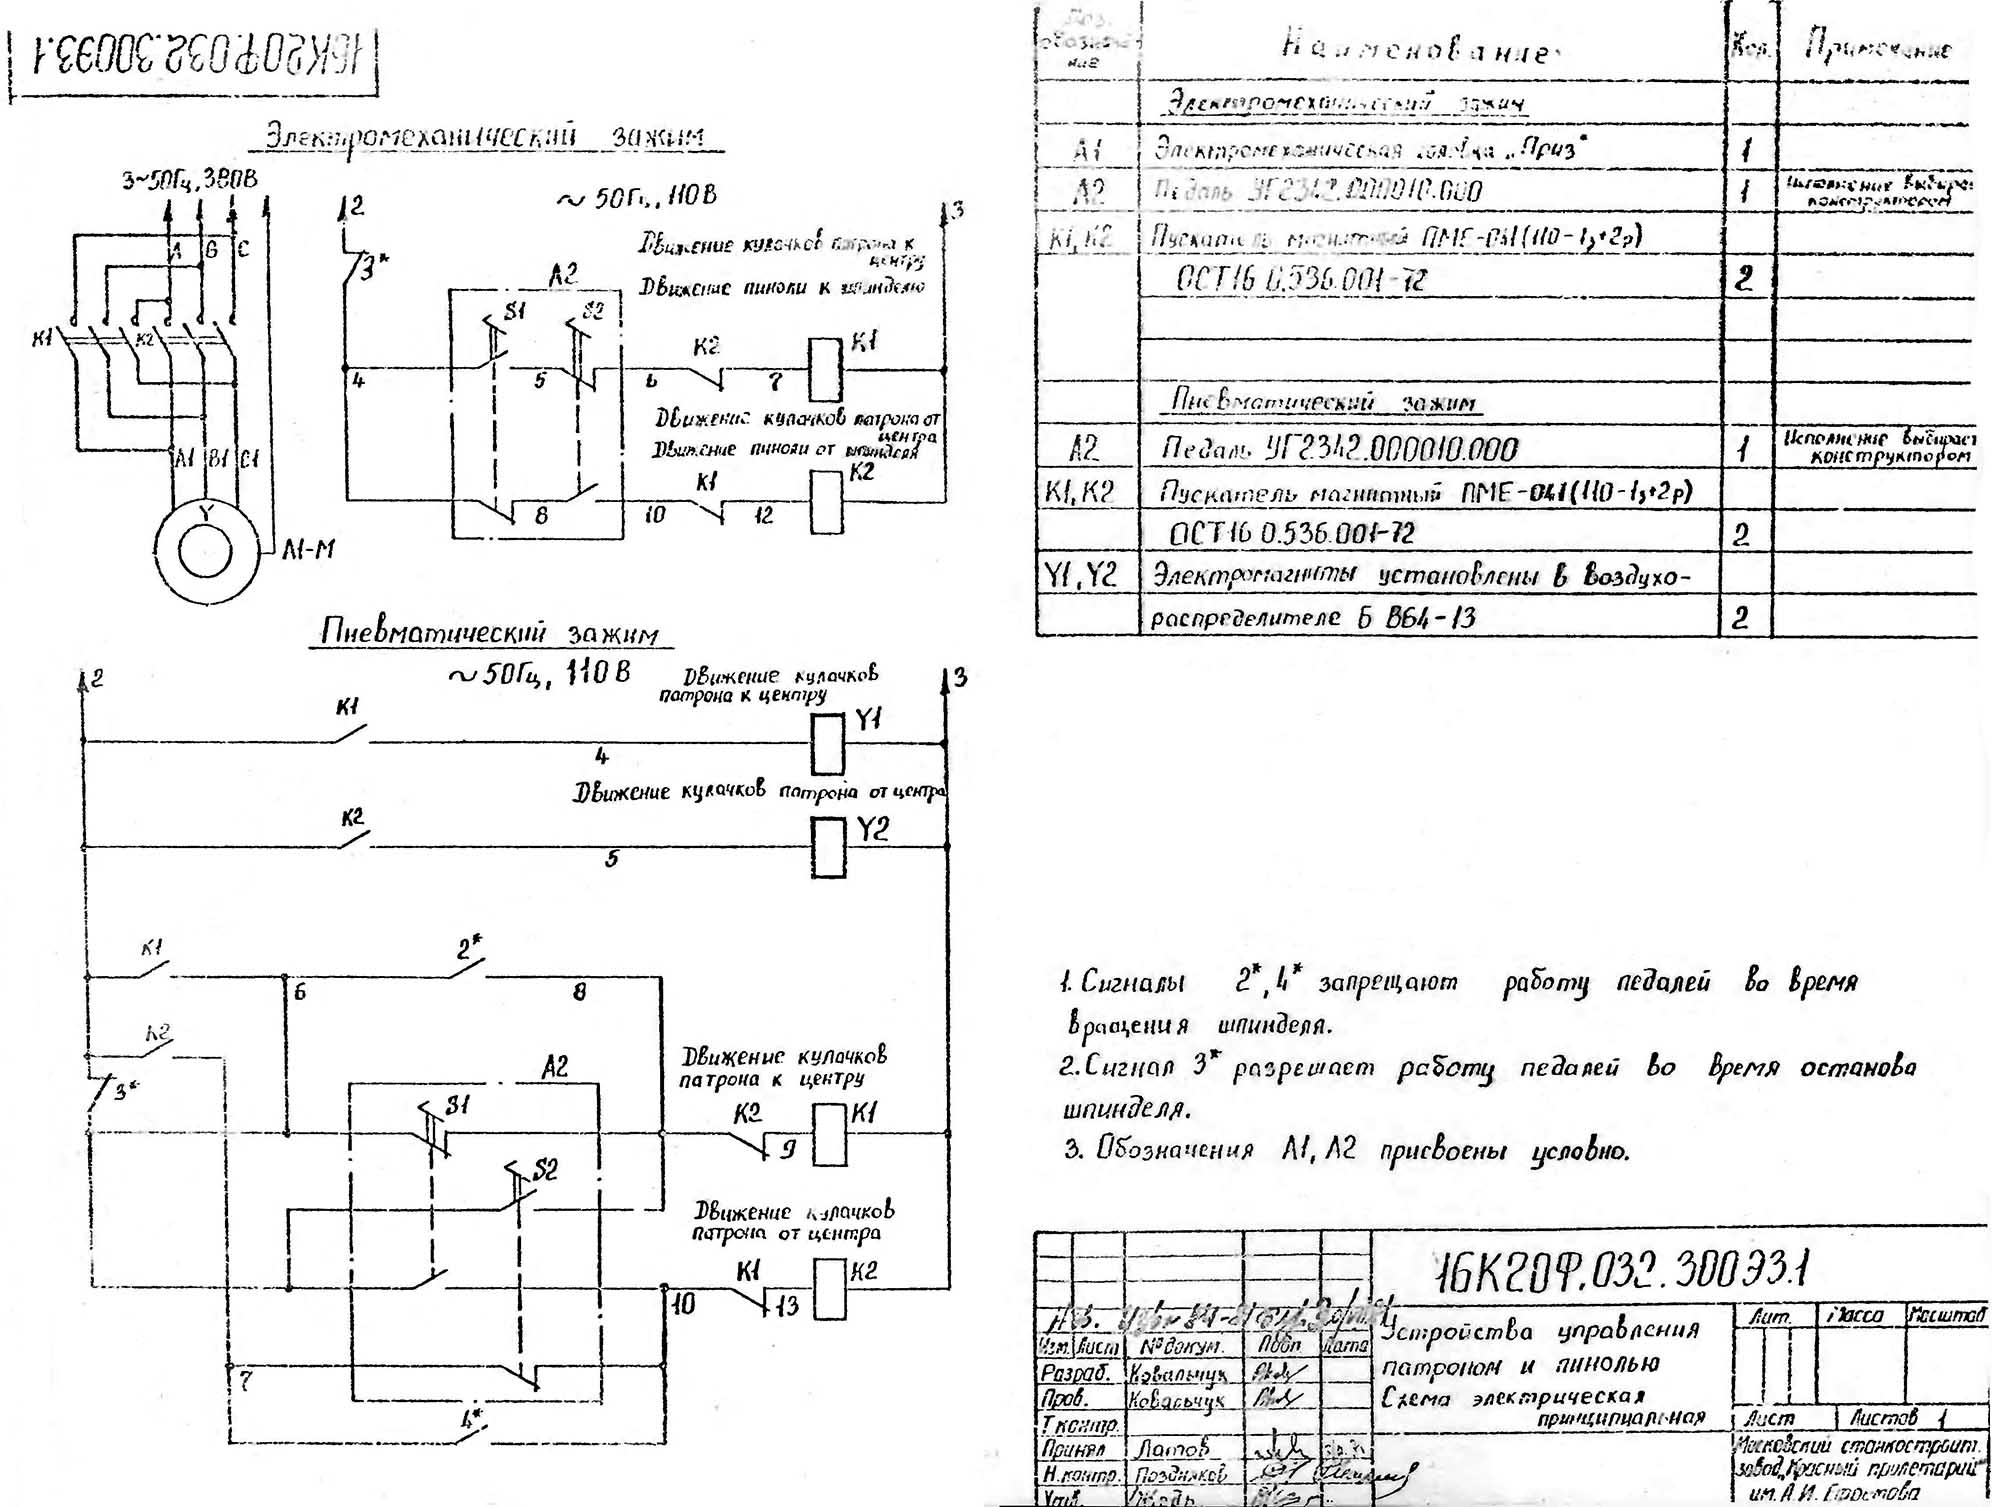 16К20Ф.032.300Э3.1
Электромеханический зажим
3~50Гц, 380В
А В С
К1 К2
А1 В1 С1
Y
А1-М
2
~50Гц, 110В
3
Движение кулачков патрона к
центру
Движение пиноли к шпинделю
3*
А2
S1 S2
К2 К1
4 5 6 7
Движение кулачков патрона от
центра
Движение пиноли от шпинделя
К1 К2
8 10 12
Пневматический зажим
2
~50Гц, 110В
3
Движение кулачков
патрона к центру
К1 Y1
4
Движение кулачков патрона от центра
К2 Y2
5
К1 2*
6 8
К2
3*
А2
Движение кулачков
патрона к центру
S1 К2 К1
9
S2
Движение кулачков
патрона от центра
К1 К2
10 13
7
4*
Поз. обозначе- ние Наименование Кол. Примечание
Электромеханический зажим
А1 Электромеханическая головка „Приз" 1
А2 Педаль УГ2342.000010.000 1 Исполнение выбирает
конструктором
К1, К2 Пускатель магнитный ПМЕ-041(110-1з+2р)
ОСТ16 0.536.001-72 2
Пневматический зажим
А2 Педаль УГ2342.000010.000 1 Исполнение выбирает
конструктором
К1, К2 Пускатель магнитный ПМЕ-041(110-1з+2р)
ОСТ16 0.536.001-72 2
Y1, Y2 Электромагниты установлены в воздухо-
распределителе Б В64-13 2
1. Сигналы 2*, 4* запрещают работу педалей во время
вращения шпинделя.
2. Сигнал 3* разрешает работу педалей во время останова
шпинделя.
3. Обозначения А1, А2 присвоены условно.
16К20Ф.032.300Э3.1
Изм. Лист № докум. Подп Дата
Разраб. Ковальчук
Пров. Ковальчук
Т контр.
Принял Латов
Н.контр. Поздняков
Утв.
Устройства управления
патроном и пинолью
Схема электрическая
принципиальная
Лит. Масса Масштаб
Лист Листов 1
Московский станкостроит.
завод „Красный пролетарий"
им. А.И. Ефремова